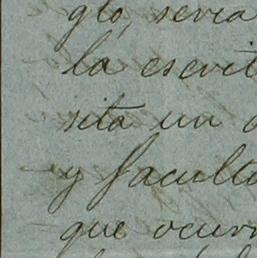 glo, seria
la escrit
sita un
y faculta
que ocurr